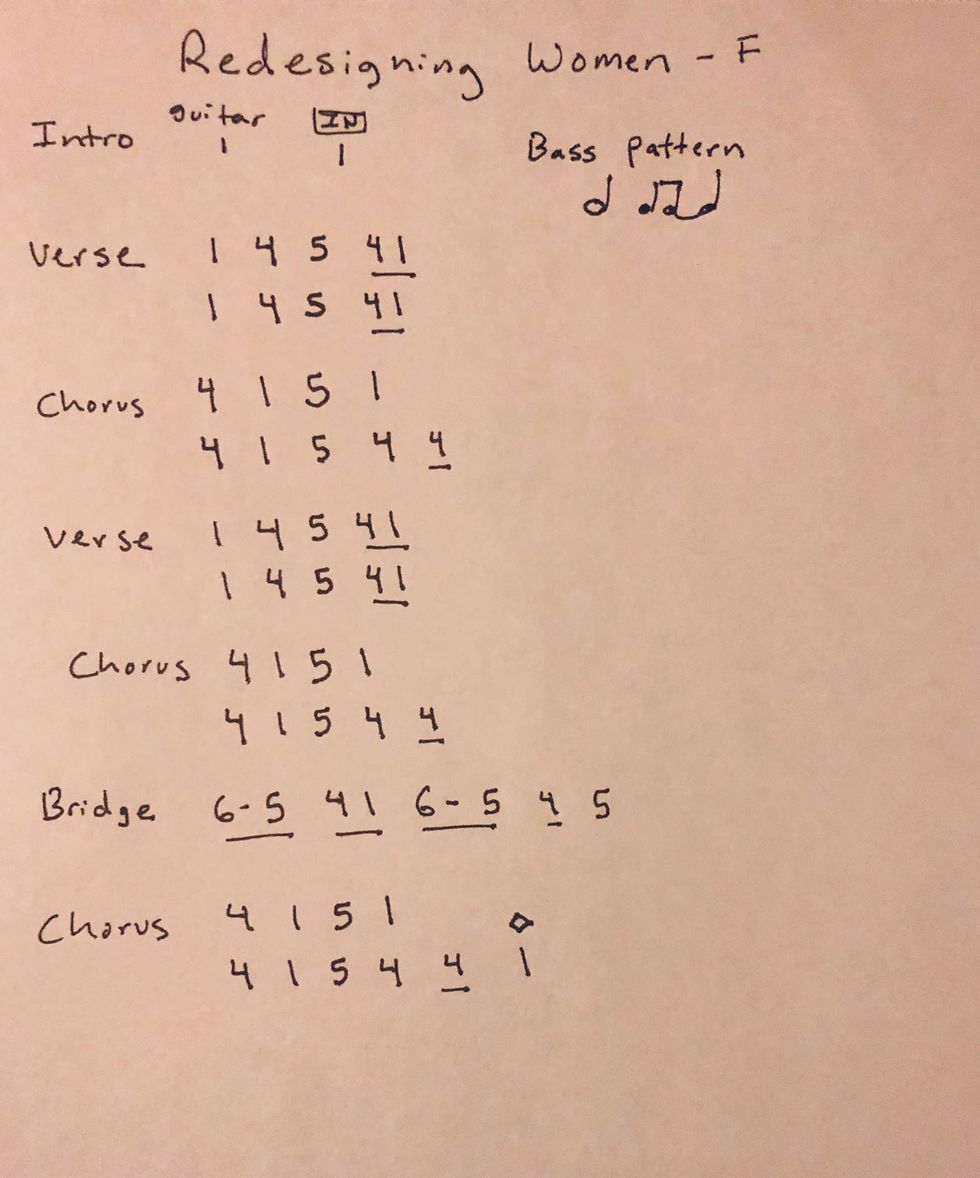 Redesigning Women - F
Intro guitar IN
1 1
Bass pattern
Verse 1 4 5 41
1 4 5 41
Chorus 4 1 5 1
4 1 5 4 4
Verse 1 4 5 41
1 4 5 41
Chorus 4 1 5 1
4 1 5 4 4
Bridge 6-5 41 6-5 4 5
Chorus 4 1 5 1
4 1 5 4 4 1